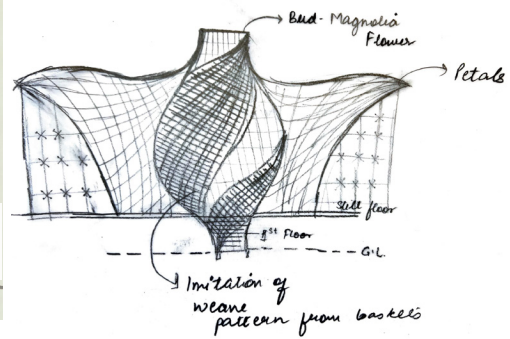 Bud - Magnolia
Flower
Petals
Still floor
1st Floor
G.L.
Imitation of
weave
pattern from baskets